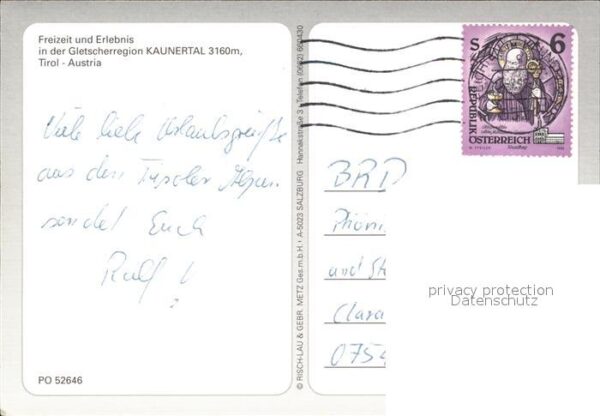 Freizeit und Erlebnis
in der Gletscherregion KAUNERTAL 3160m,
Tirol - Austria
Viele liebe Urlaubsgrüße
aus den Tyroler Alpen
sendet Euch
Ralf !
PO 52646
© RISCH-LAU & GEBR. METZ Ges.m.b.H. • A-5023 SALZBURG Hannakstraße 3 • Telefon (0662) 660430
S 6
REPUBLIK
ÖSTERREICH
BRD
Phöni
und St
Clara
0754
privacy protection
Datenschutz